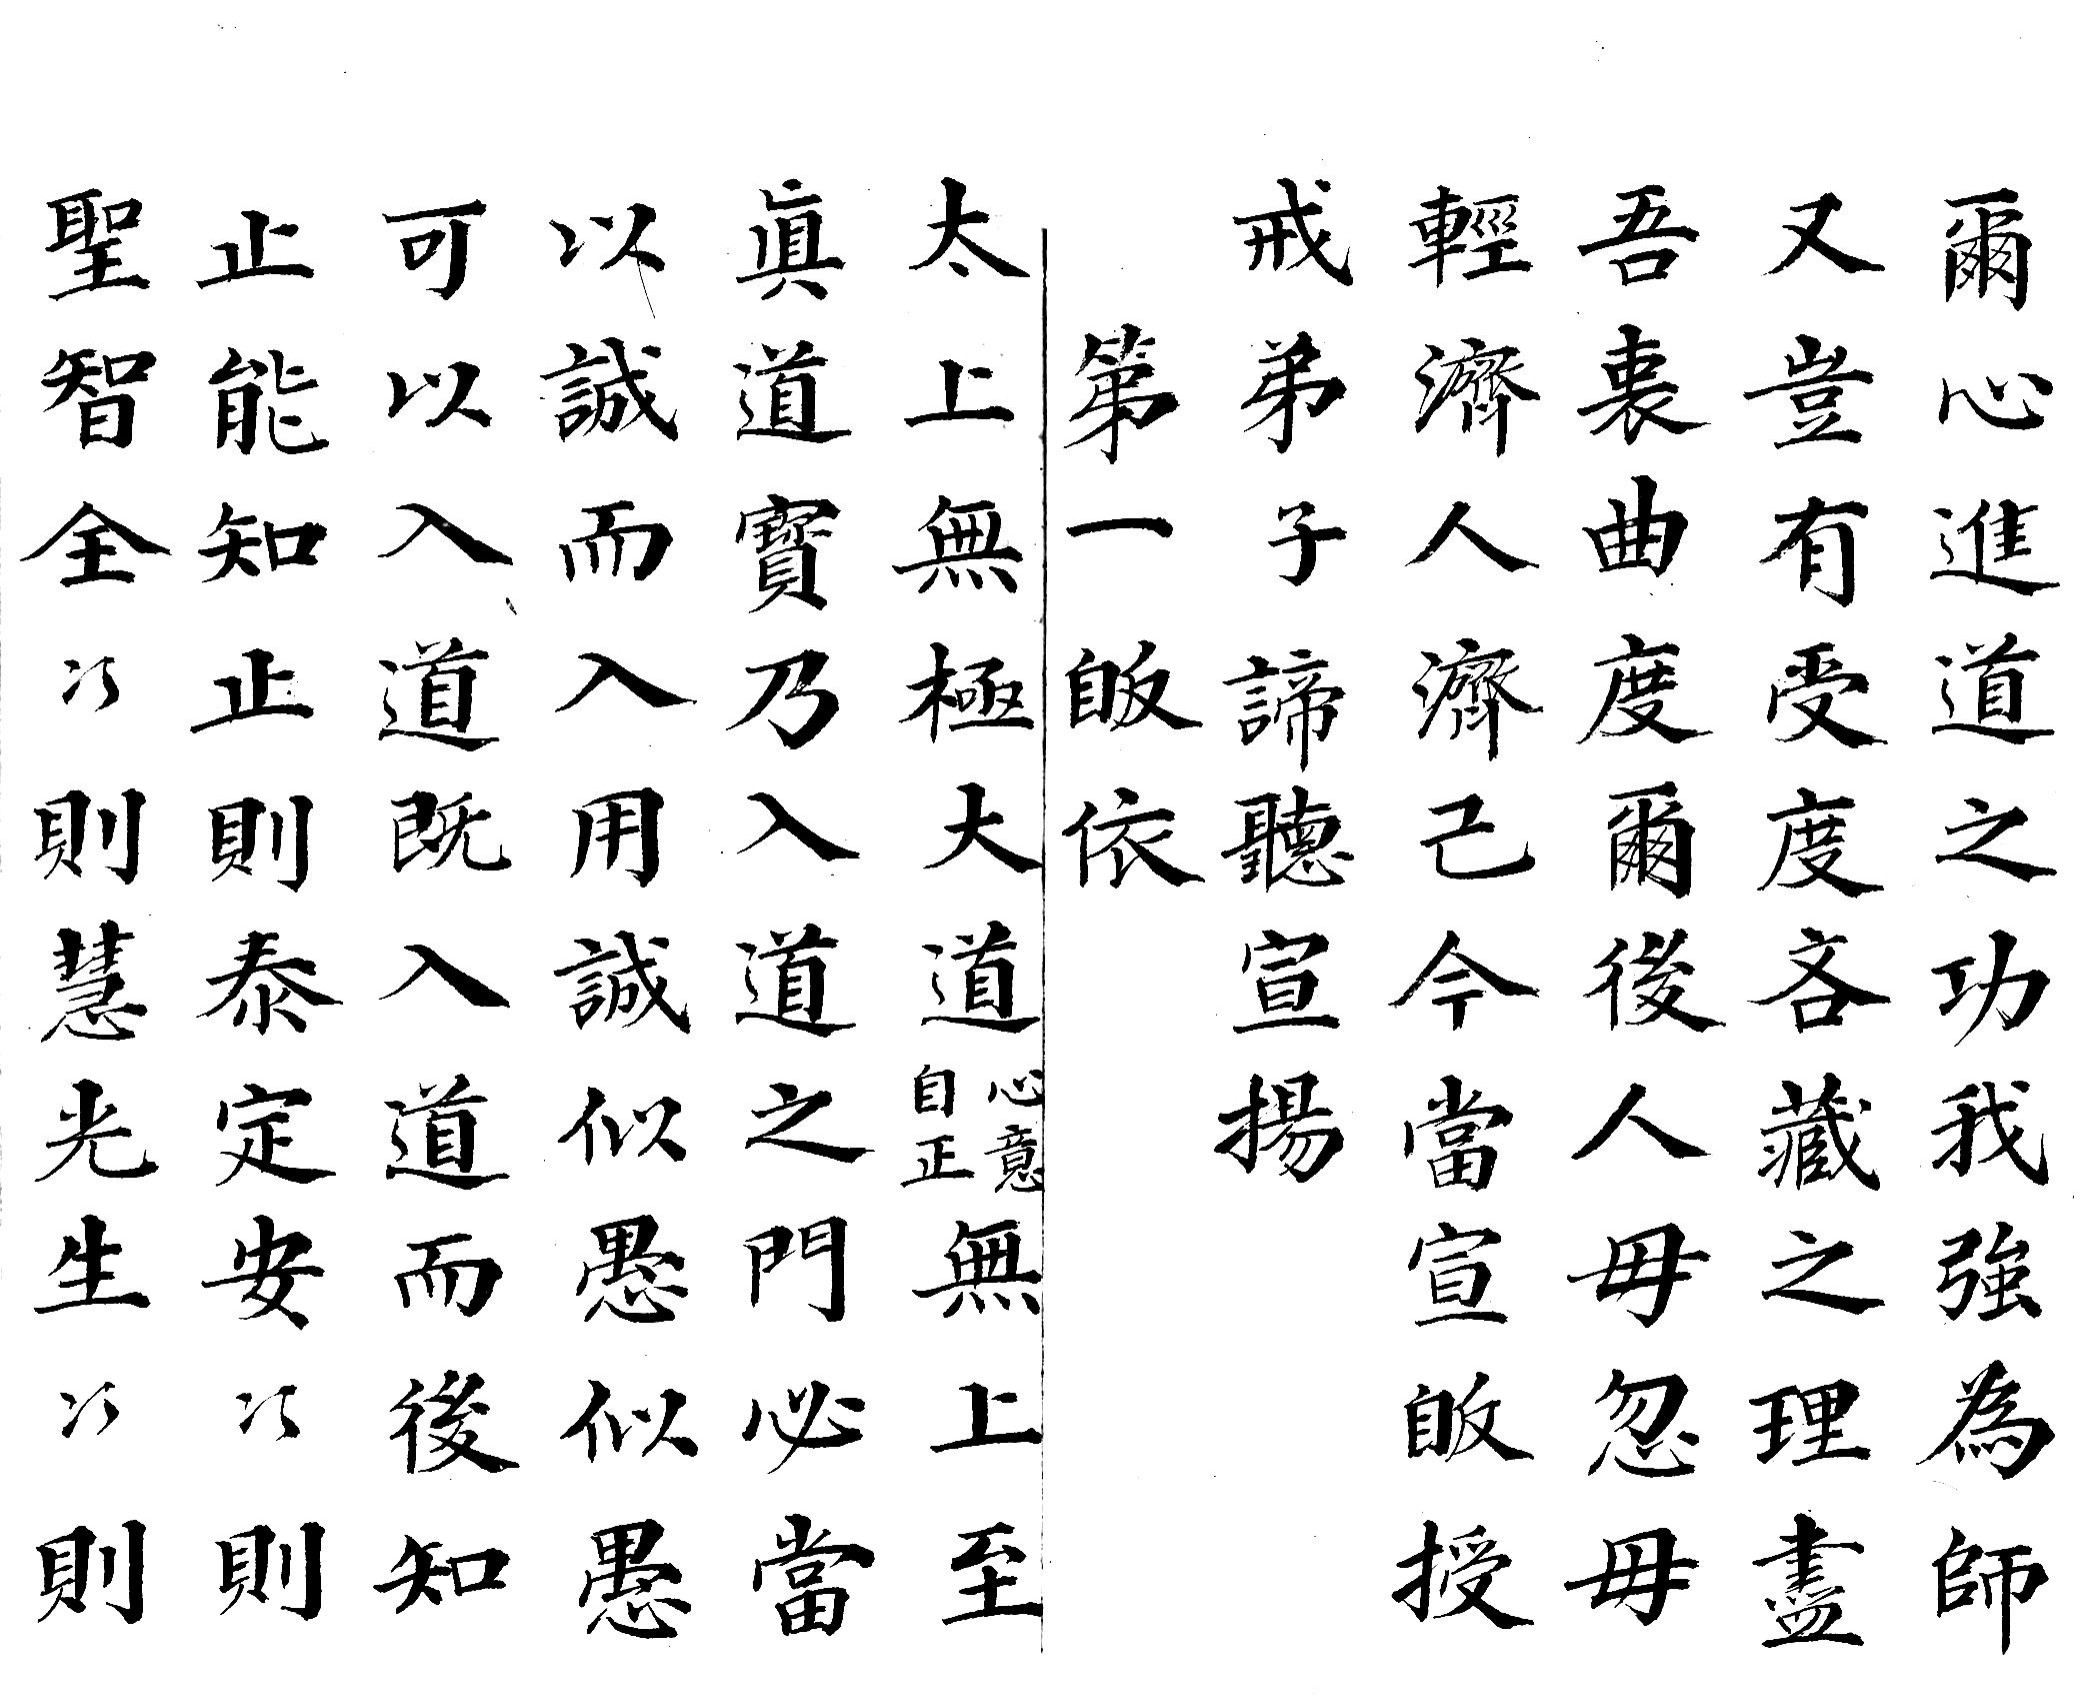 爾心進道之功我強為師
又豈有受度吝藏之理盡
吾衷曲度爾後人毋忽毋
輕濟人濟己今當宣皈授
戒弟子諦聽宣揚
第一皈依
太上無極大道心意自正無上至
眞道寶乃入道之門必當
以誠而入用誠似愚似愚
可以入道既入道而後知
止能知止止則泰定安〻則
聖智全〻則慧光生〻則